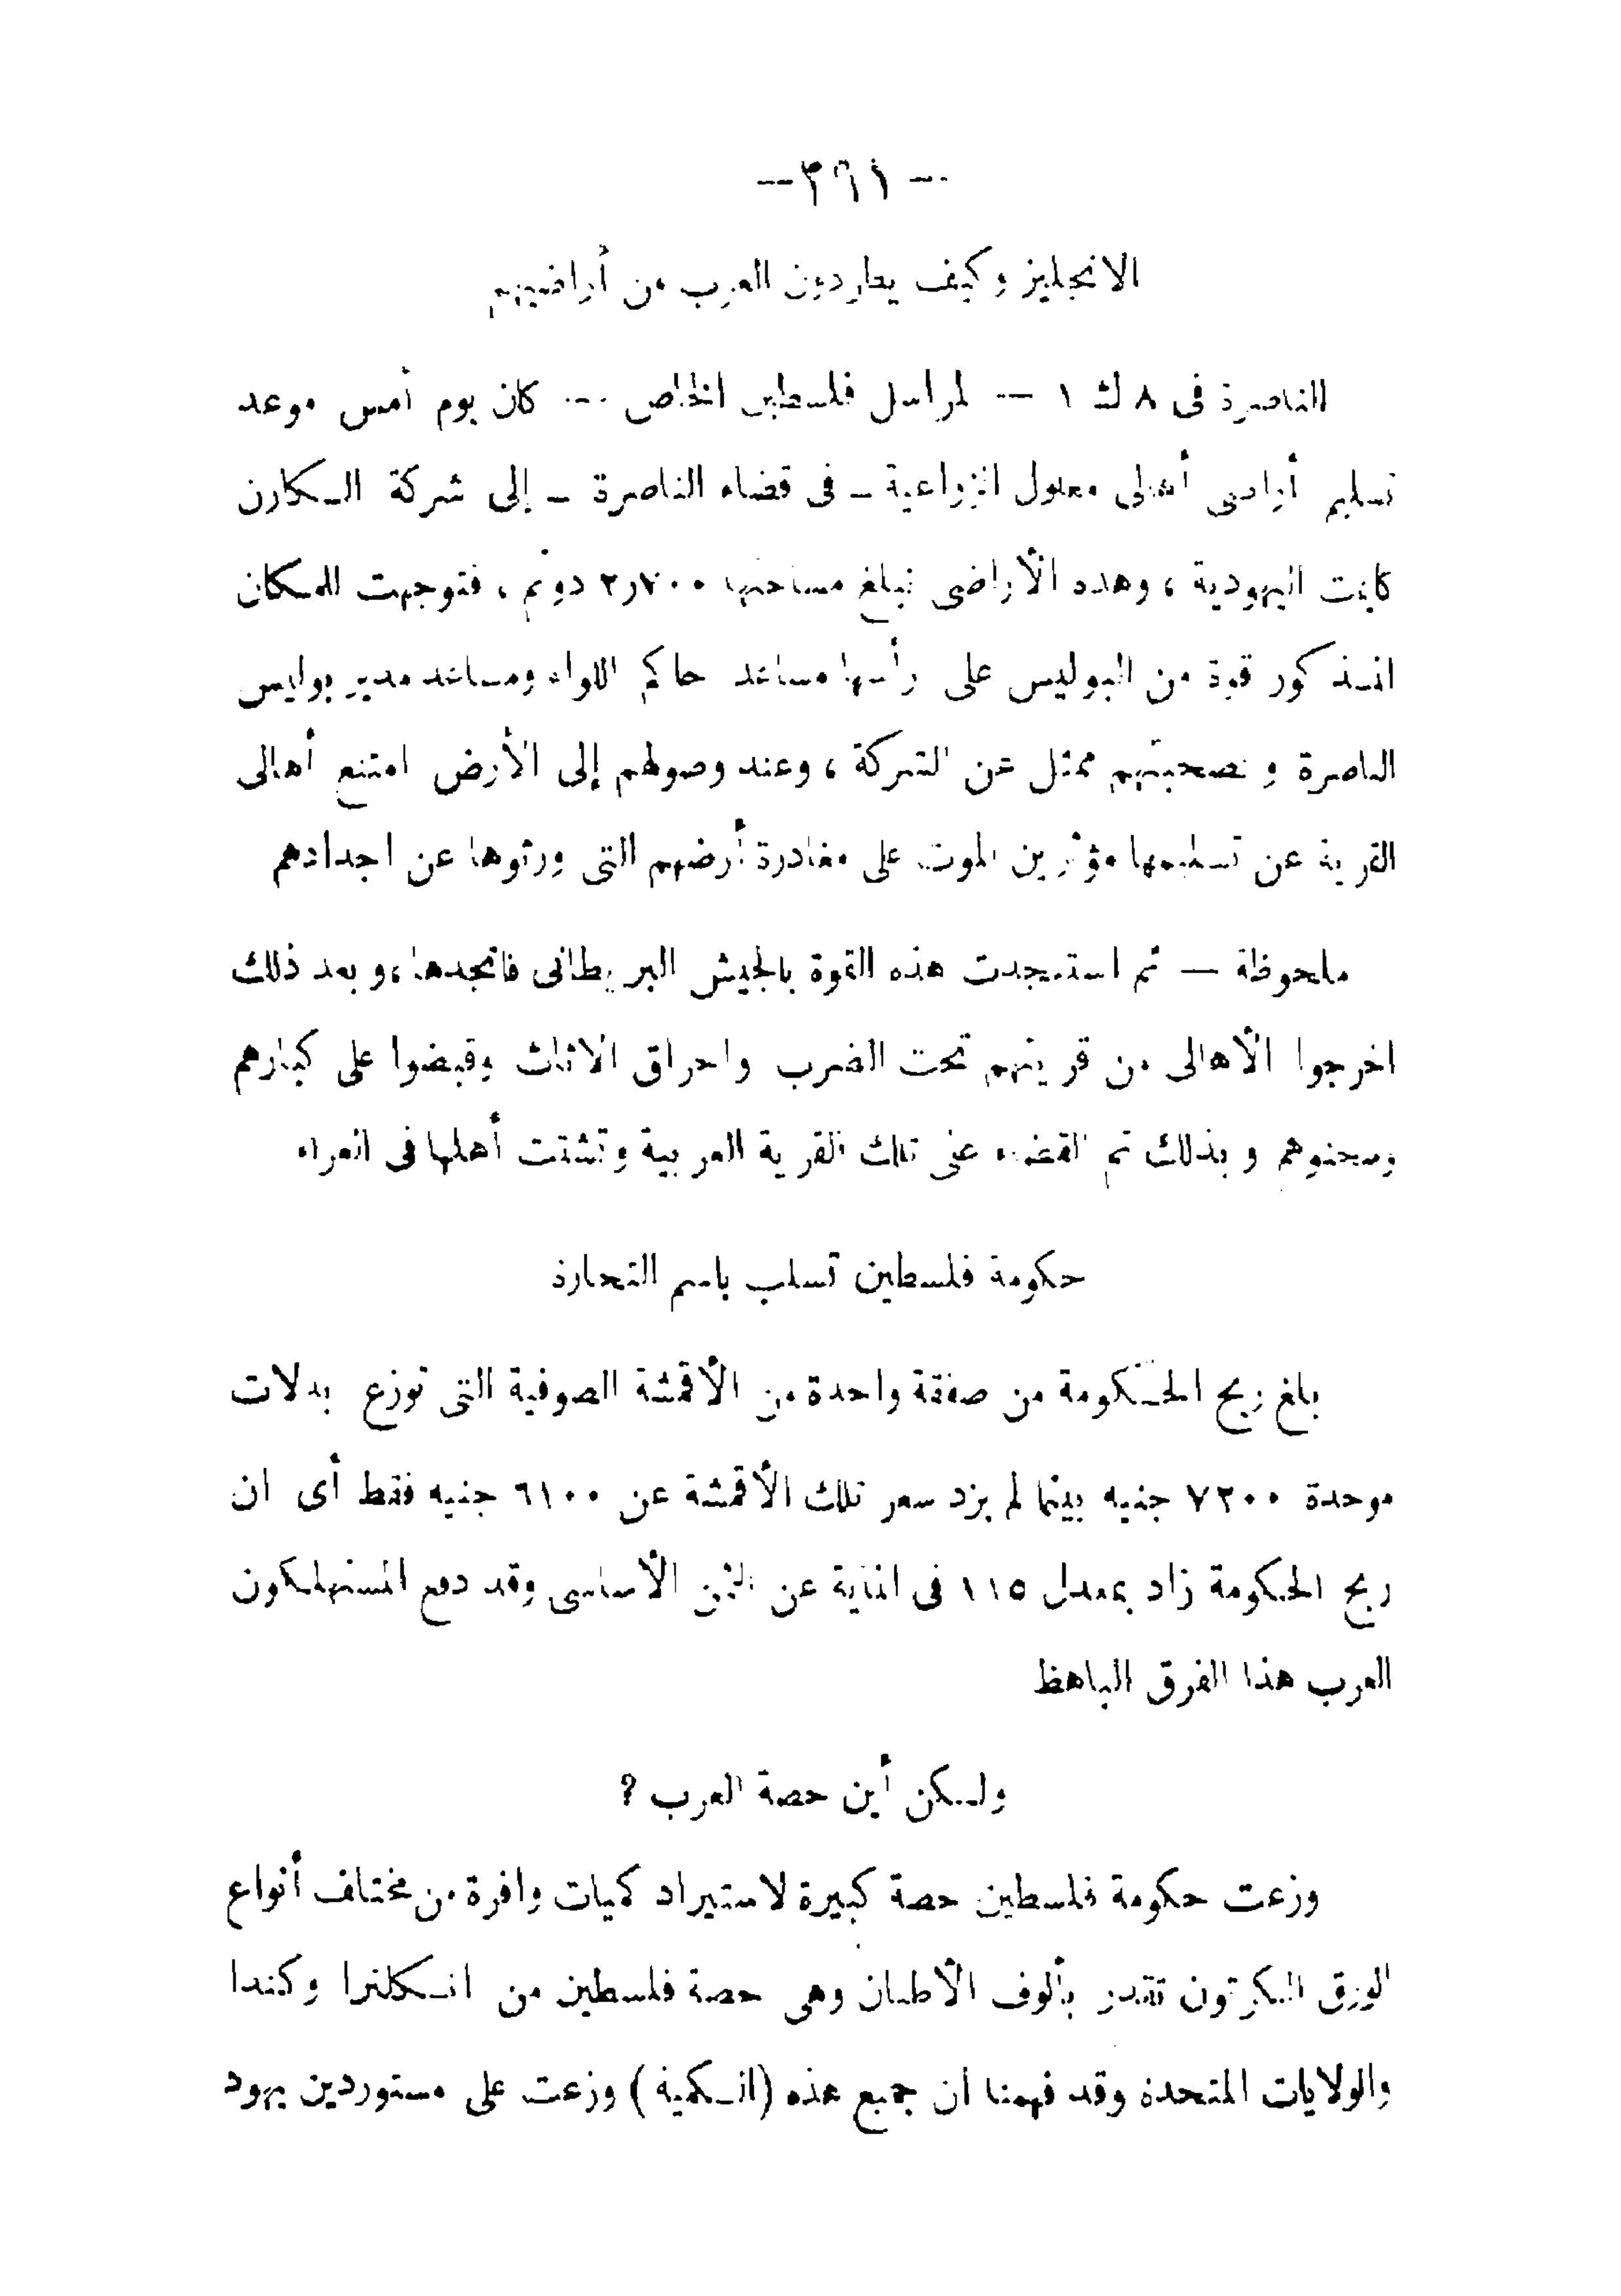 -- ٣٦١ --
الانجليز وكيف يطاردون العرب من أراضيهم
الناصرة فى ٨ ك ١ — لمراسل فلسطين الخاص — كان يوم أمس موعد
تسليم أراضى أهالى معلول الزراعية – فى قضاء الناصرة – إلى شركة الكارن
كايمت اليهودية ، وهذه الأراضى تبلغ مساحتها ٢٫٧٠٠ دونم ، فتوجهت للمكان
المذكور قوة من البوليس على رأسها مساعد حاكم اللواء ومساعد مدير بوليس
الناصرة و بصحبتهم ممثل عن الشركة ، وعند وصولهم إلى الأرض امتنع أهالى
القرية عن تسليمها مؤثرين الموت على مغادرة أرضهم التى ورثوها عن اجدادهم
ملحوظة — ثم استنجدت هذه القوة بالجيش البريطانى فانجدها ، و بعد ذلك
اخرجوا الأهالى من قريتهم تحت الضرب واحراق الاثاث وقبضوا على كبارهم
وسجنوهم و بذلك تم القضاء على تلك القرية العربية وتشتت أهلها فى العراء
حكومة فلسطين تسلب باسم التجارة
بلغ ربح الحكومة من صفقة واحدة من الأقمشة الصوفية التى توزع بدلات
موحدة ٧٢٠٠ جنيه بينما لم يزد سعر تلك الأقمشة عن ٦١٠٠ جنيه فقط أى ان
ربح الحكومة زاد بمعدل ١١٥ فى المئاية عن الثمن الأساسى وقد دفع المستهلكون
العرب هذا الفرق الباهظ
ولكن أين حصة العرب ؟
وزعت حكومة فلسطين حصة كبيرة لاستيراد كميات وافرة من مختلف أنواع
الورق الكرتون تقدر بألوف الأطنان وهى حصة فلسطين من انكلترا وكندا
والولايات المتحدة وقد فهمنا ان جميع هذه (الكمية) وزعت على مستوردين يهود